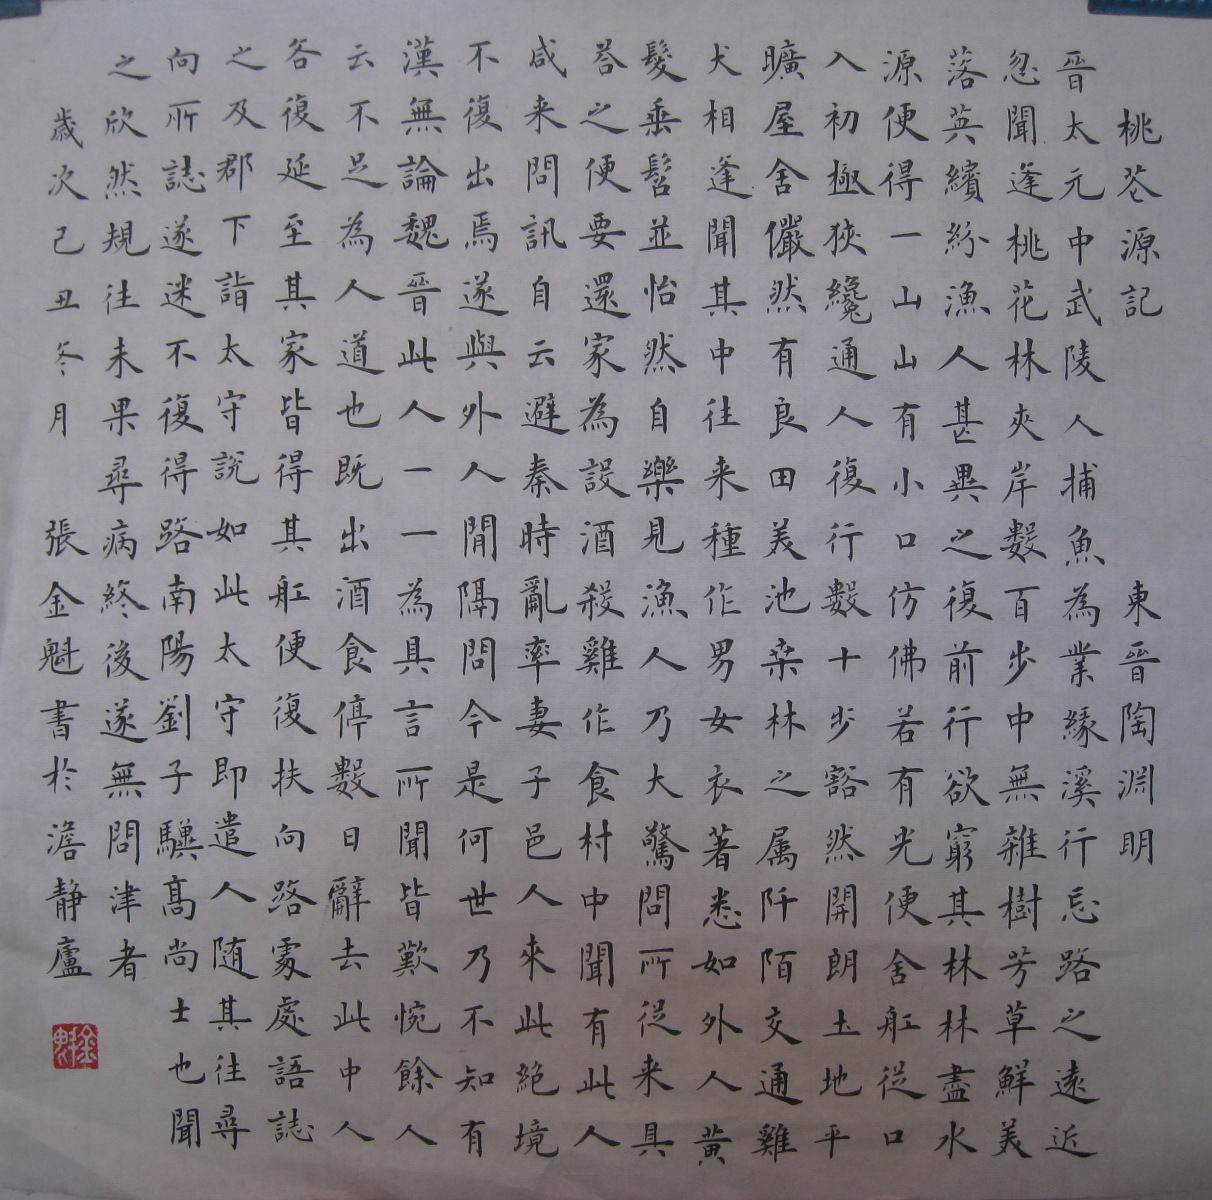 桃花源記 東晉陶淵明
晉太元中武陵人捕魚為業緣溪行忘路之遠近
忽聞逢桃花林夾岸數百步中無雜樹芳草鮮美
落英繽紛漁人甚異之復前行欲窮其林林盡水
源便得一山山有小口仿佛若有光便舍舡從口
入初極狹纔通人復行數十步豁然開朗土地平
曠屋舍儼然有良田美池桒林之属阡陌交通雞
犬相逢聞其中往来種作男女衣著悉如外人黄
髮垂髫並怡然自樂見漁人乃大驚問所從来具
荅之便要還家為設酒殺雞作食村中聞有此人
咸来問訊自云避秦時亂率妻子邑人來此絕境
不復出焉遂與外人間隔問今是何世乃不知有
漢無論魏晉此人一一為具言所聞皆歎惋餘人
云不足為人道也既出酒食停數日辭去此中人
各復延至其家皆得其舡便復扶向路處處語誌
之及郡下詣太守說如此太守即遣人随其往尋
向所誌遂迷不復得路南陽劉子驥高尚士也聞
之欣然規往未果尋病終後遂無問津者
歲次己丑冬月 張金魁書於澹静廬
金魁